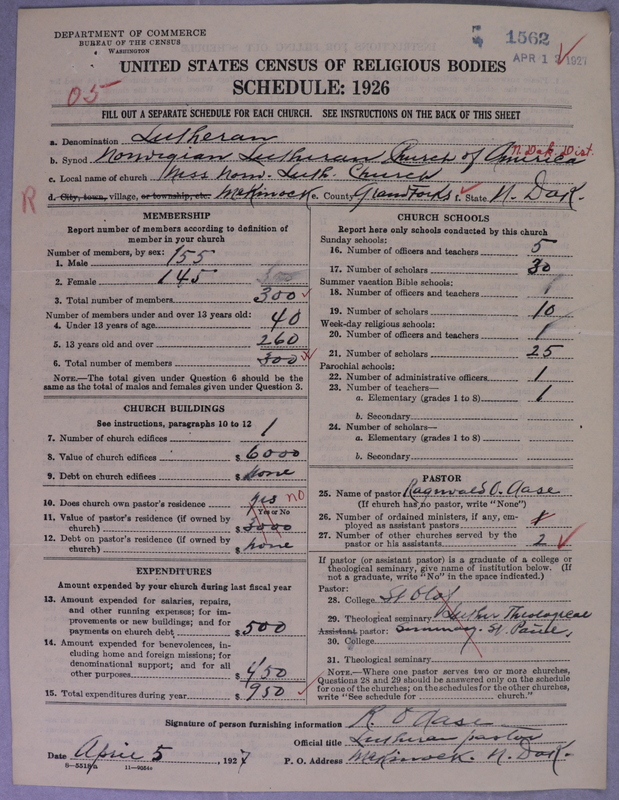 DEPARTMENT OF COMMERCE
BUREAU OF THE CENSUS
WASHINGTON
1562
APR 1 1927
UNITED STATES CENSUS OF RELIGIOUS BODIES
SCHEDULE: 1926
05
FILL OUT A SEPARATE SCHEDULE FOR EACH CHURCH. SEE INSTRUCTIONS ON THE BACK OF THIS SHEET
a. Denomination Lutheran
b. Synod Norwegian Lutheran Church of America N. Dak. Dist.
c. Local name of church Miss Norw. Luth. Church
R d. City, town, village, or township, etc. McKinock e. County Grand Forks f. State N. Dak.
MEMBERSHIP
Report number of members according to definition of
member in your church
Number of members, by sex:
1. Male 155
2. Female 145
3. Total number of members 300
Number of members under and over 13 years old:
4. Under 13 years of age 40
5. 13 years old and over 260
6. Total number of members 300
NOTE.—The total given under Question 6 should be the
same as the total of males and females given under Question 3.
CHURCH BUILDINGS
See instructions, paragraphs 10 to 12
7. Number of church edifices 1
8. Value of church edifices $ 6000
9. Debt on church edifices $ None
10. Does church own pastor's residence yes no
Yes or No
11. Value of pastor's residence (if owned by
church) $ 3000
12. Debt on pastor's residence (if owned by
church) $ None
EXPENDITURES
Amount expended by your church during last fiscal year
13. Amount expended for salaries, repairs,
and other running expenses; for im-
provements or new buildings; and for
payments on church debt $ 500
14. Amount expended for benevolences, in-
cluding home and foreign missions; for
denominational support; and for all
other purposes $ 450
15. Total expenditures during year $ 950
CHURCH SCHOOLS
Report here only schools conducted by this church
Sunday schools:
16. Number of officers and teachers 5
17. Number of scholars 30
Summer vacation Bible schools:
18. Number of officers and teachers 1
19. Number of scholars 10
Week-day religious schools:
20. Number of officers and teachers 1
21. Number of scholars 25
Parochial schools:
22. Number of administrative officers 1
23. Number of teachers—
a. Elementary (grades 1 to 8) 1
b. Secondary
24. Number of scholars—
a. Elementary (grades 1 to 8)
b. Secondary
PASTOR
25. Name of pastor Ragnvald O. Aase
(If church has no pastor, write "None")
26. Number of ordained ministers, if any, em-
ployed as assistant pastors
27. Number of other churches served by the
pastor or his assistants 2
If pastor (or assistant pastor) is a graduate of a college or
theological seminary, give name of institution below. (If
not a graduate, write "No" in the space indicated.)
Pastor:
28. College St Olaf
29. Theological seminary Luther Theological
Assistant pastor: Seminary. St. Paul.
30. College
31. Theological seminary
NOTE.—Where one pastor serves two or more churches,
Questions 28 and 29 should be answered only on the schedule
for one of the churches; on the schedules for the other churches,
write "See schedule for church."
Signature of person furnishing information R. O Aase
Official title Lutheran pastor
Date April 5, 1927 P. O. Address McKinock. N. Dak.
11—9054